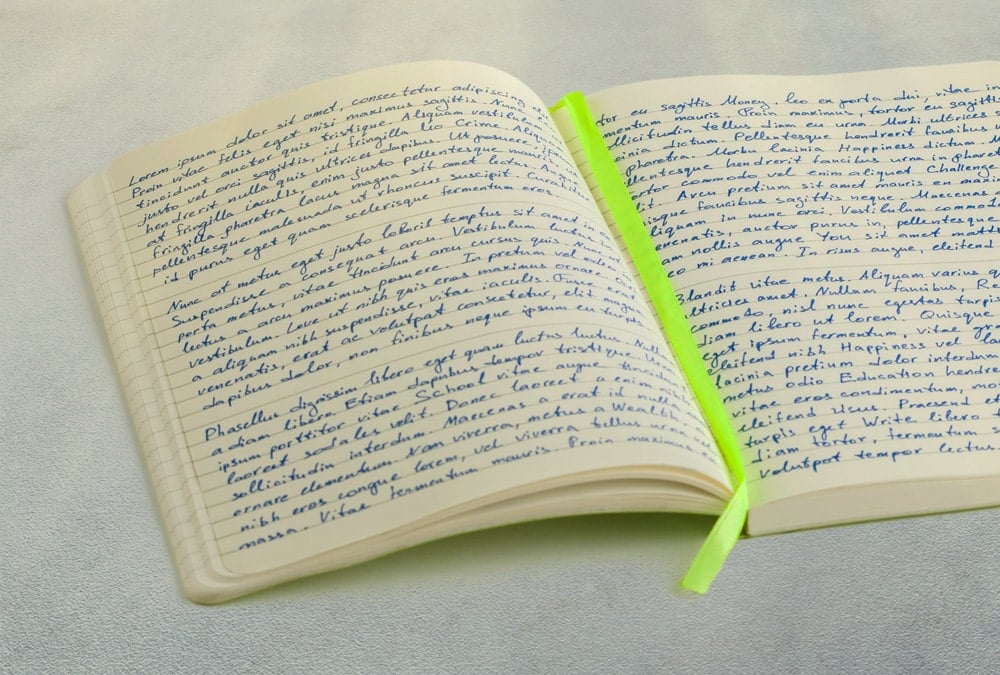 Lorem ipsum dolor sit amet, consectetur adipiscing
Proin vitae felis eget nisi maximus sagittis. Nunc
tincidunt auctor quis tristique. Aliquam vestibulum
justo vel orci sagittis, id fringilla leo Crime. Aliqu
hendrerit nulla quis ultrices dapibus. Ut posuere
at fringilla iaculis, enim justo pellentesque mauris
fringilla pharetra lacus magna sit amet lectus. Aliqu
pellentesque malesuada ut rhoncus suscipit. Curabi
id purus eget quam scelerisque fermentum eros
Nunc at metus eget justo tempus sit amet
Suspendisse a consequat arcu. Vestibulum luctus
porta metus, vitae tincidunt arcu cursus quis. Nu
lectus a arcu maximus posuere. In pretium vel
vestibulum. Love ut nibh quis eros maximus ornare
a aliquam nibh suspendisse, vitae iaculis. Fusce
venenatis, erat ac volutpat consectetur, elit magna
dapibus dolor, non finibus neque ipsum eu turpis
Phasellus dignissim libero eget quam luctus luctus. Null
a diam libero. Etiam dapibus tempor tristique
ipsum porttitor vitae School vitae augue tincidun
laoreet sodales velit. Donec laoreet a enim
sollicitudin interdum. Maecenas a erat id nulla
ornare elementum. Nam viverra, metus a Wealth
nibh eros congue lorem, vel viverra tellus urna
massa. Vitae fermentum mauris. Proin maximus
tor eu sagittis Money. leo ex porta dui, vitae in
mentum mauris. Proin maximus, tortor eu sagitti
llicitudin tellus diam eu urna Morbi ultrices
inia dictum. Pellentesque hendrerit faucibus
pharetra. Morbi lacinia Happiness dictum. M
lesque hendrerit faucibus urna in pharet
rtor commodo vel enim aliquet Challeng
it. Arcu pretium sit amet mauris en ma
isque faucibus sagittis neque. Maecenas
liquam in nunc orci. Vestibulum commo
enatis, auctor purus in, pellentesque
am nollis augue. You sit amet matt
eo mi aenean. In risus augue, eleifend
blandit vitae metus. Aliquam varius
ltricies amet. Nullam faucibus, Re
commodo, nisl nunc egestas turpis
diam libero ut lorem. Quisque
eget ipsum fermentum, vitae gr
eleifend nibh Happiness vel
lacinia pretium dolor interdum
metus odio Education hendre
vitae eros condimentum, mo
eleifend usus. Praesend
turpis eget Write libero
diam tortor, fermentum
volutpat tempor lectus.